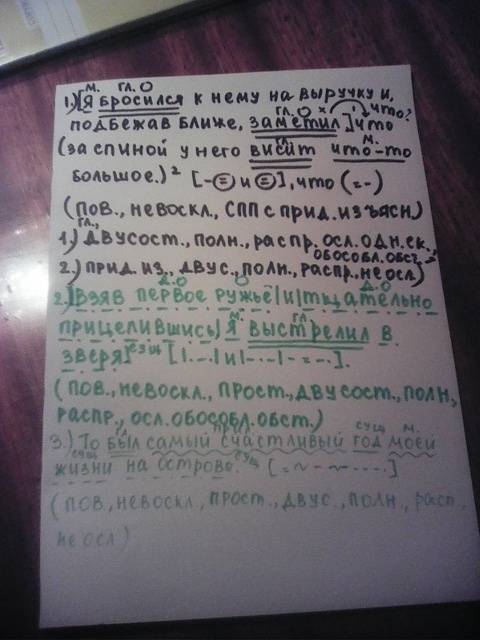 м. гл. О
1.)[Я бросился к нему на выручку и,
гл. О х что?
подбежав ближе, заметил], что
гл. м.
(за спиной у него висит что-то
большое.)² [-⊜ и ⊜], что (=-)
(пов., невоскл., СПП с прид. изъясн.)
гл.,
1.) двусост., полн., распр. осл. одн. ск.,
обособл. обст.,
2.) прид. из., двус., полн., распр. не осл.)
д. О О д. О
2.)[Взяв первое ружьё|и|тщательно
м. гл.
прицелившись| я выстрелил в
зверя] сущ [|.-.-.| и |-.-.-| - = -.-.].
(пов., невоскл., прост., двусост., полн.,
распр., осл. обособл. обст.)
сущ м.
3.) То был самый счастливый год моей
сущ сущ
жизни на острове. [= ~ - ~ -----]
(пов., невоскл., прост., двус., полн., расп.,
не осл)